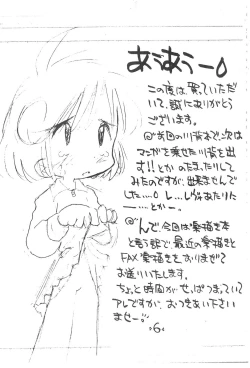 あうあうー
この度は買っていただ
いて、誠にありがとう
ございます。
@前回の川背ねで、次は
マンガを乗せた川背を出
す!!とか のたまったりして
みたのですが、出来ませんで
した…。し…しやあたりん
ー…とかー。
@んで、今回は落描き本
と言う訳で、最近の落描きと
FAX落描きをおりまぜて
お送りいたします。
ちょっと時間が せっぱつまっていて
アレですが、おつきあい下さい
ませー。
6